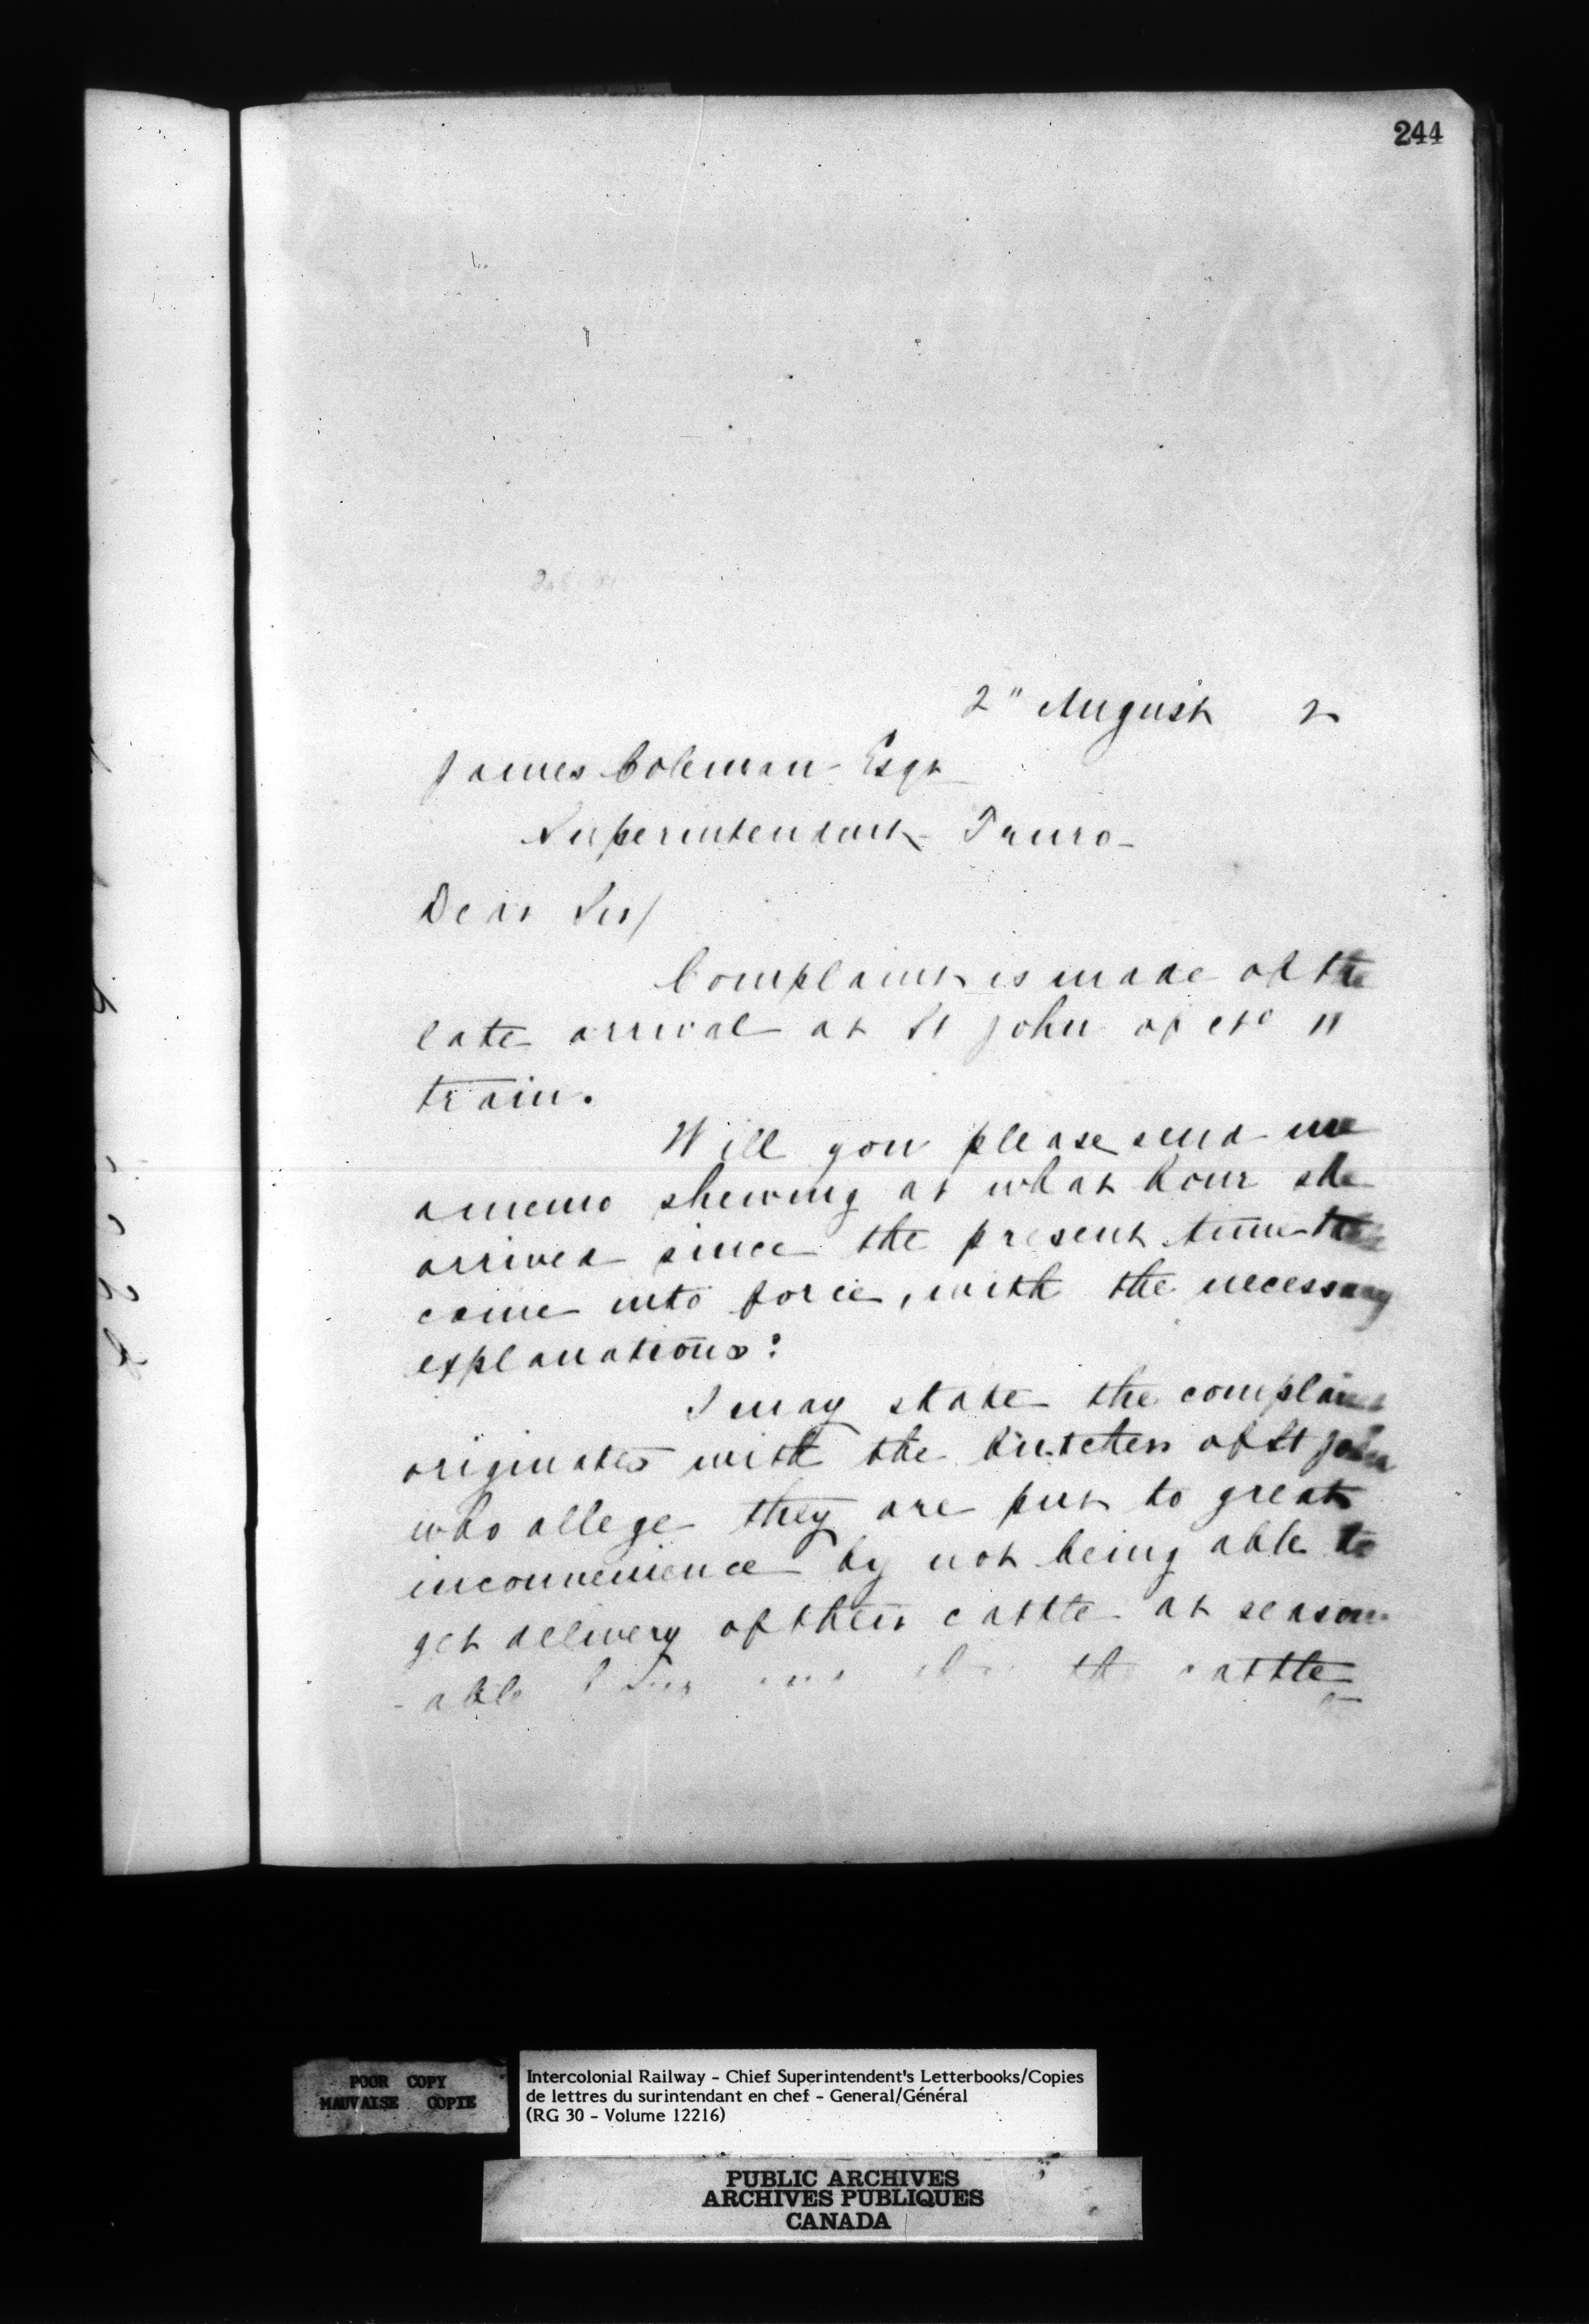 244
2" August 2
James Coleman Esqr
Superintendent Truro
Dear Sir/
Complaint is made of the
late arrival at St John of No 11
train.
Will you please send me
a memo shewing at what hour she
arrived since the present time table
came into force, with the necessary
explanations:
I may state the complaint
originates with the butchers of St John
who allege they are put to great
inconvenience by not being able to
get delivery of their cattle at season
-able the cattle
POOR COPY
MAUVAISE COPIE
Intercolonial Railway - Chief Superintendent's Letterbooks/Copies
de lettres du surintendant en chef - General/Général
(RG 30 - Volume 12216)
PUBLIC ARCHIVES
ARCHIVES PUBLIQUES
CANADA